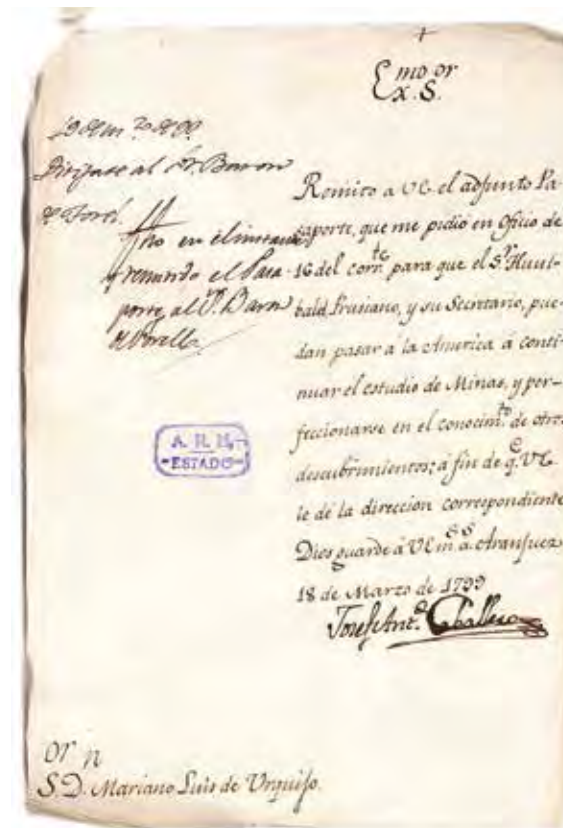 +
Exmo. Sor.
19 de
Dirijase al Sr. Baron
de Forel.
fho en el mismo
remitiendo el Pasa-
porte, al Sr. Baron
de Forell.
Remito a VE. el adjunto Pa-
saporte, que me pidió en Oficio de
16 del corrte. para que el Sr. Humt-
bald, Prusiano, y su Secretario, pue-
dan pasar á la America á conti-
nuar el estudio de Minas, y per-
feccionarse en el conocimto. de otros
descubrimientos; á fin de qe. VE
le dé la direccion correspondiente
Dios guarde á VE ms. as. Aranjuez
18 de Marzo de 1799
Josef Anto. Caballero
A. H. N.
ESTADO
Sor. Dn. Mariano Luis de Urquijo.